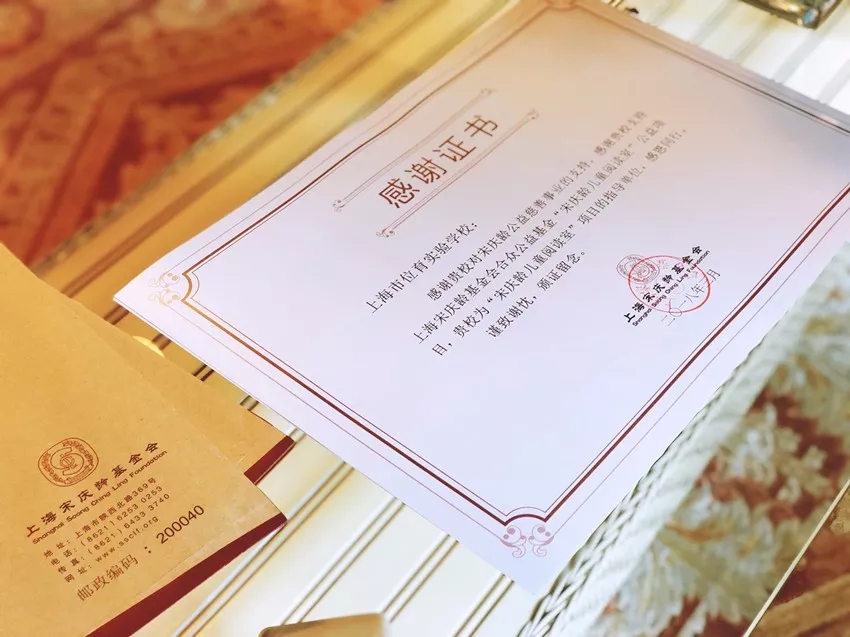 感谢证书
上海市位育实验学校：
感谢贵校对宋庆龄公益慈善事业的支持，感谢贵校支持
上海宋庆龄基金会合众公益基金“宋庆龄儿童阅读室”公益项
目，贵校为“宋庆龄儿童阅读室”项目的指导单位，感恩同行。
谨致谢忱，颁证留念。
上海宋庆龄基金会
Shanghai Soong Ching Ling Foundation
二〇一八年 月
上海宋庆龄基金会
Shanghai Soong Ching Ling Foundation
地址：上海市陕西北路369号
电话：(8621) 6253 0253
传真：(8621) 6433 3740
网址：www.ssclf.org
邮政编码：200040